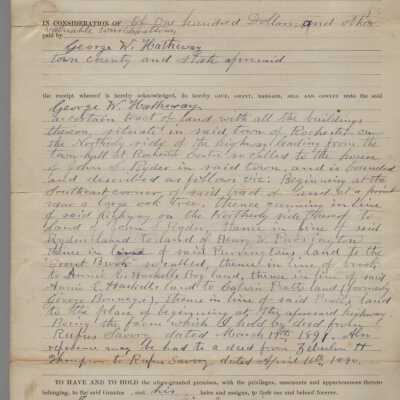 IN CONSIDERATION OF One hundred Dollars and other
valuable considerations
paid by
George W. Hatheway
town County and State aforesaid
the receipt whereof is hereby acknowledged, do hereby GIVE, GRANT, BARGAIN, SELL AND CONVEY unto the said
George W. Hatheway
a certain tract of land with all the buildings
thereon, situate in said town of Rochester on
the Northerly side of the highway leading from the
town hall at Rochester so called to the house
of John S. Ryder in said town, and is bounded
and described as follows, viz: Beginning at the
Southeast corner of said tract of land at a point
near a large oak tree. thence running in line
of said highway on the Northerly side thereof to
land of John S. Ryder, thence in line of said
Ryder land to land of Henry W.
thence in line of said land to the
Brook so called, thence in line of brook
to Annie E. Hacketts land, thence in line of said
Annie E. Hacketts land to Pratts land (formerly
George ), thence in line of said Pratts land
to the place of beginning at the aforesaid highway.
Being the farm which I hold by deed from
Rufus Savory dated March 19th, 1891.
reference may be had to a deed from H
Thompson to Rufus Savory dated April 16th, 1890.
TO HAVE AND TO HOLD the above-granted premises, with the privileges, easements and appurtenances thereto
belonging, to the said Grantee and his heirs and assigns, to their use and behoof forever.